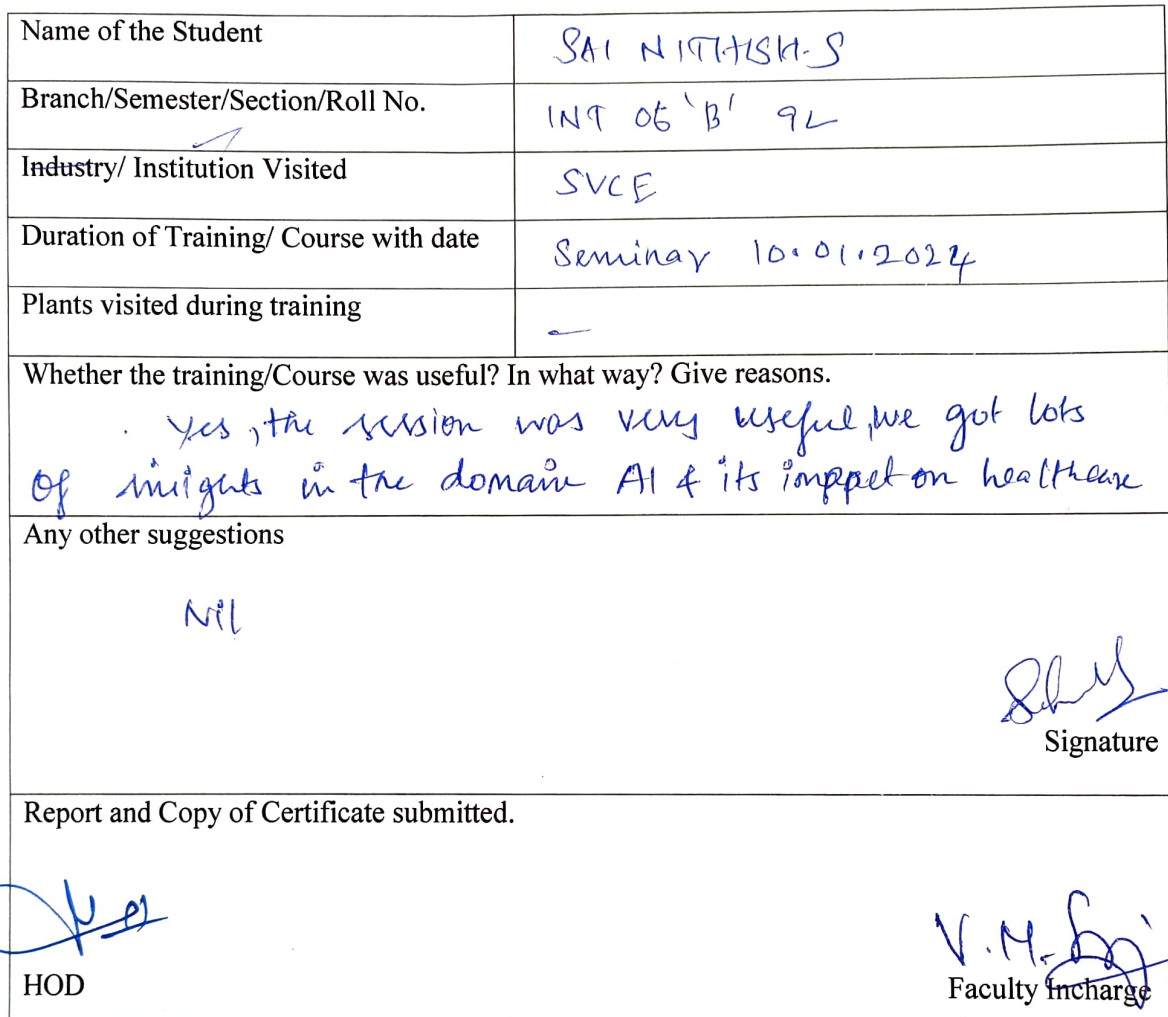 Name of the Student SAI NITHISH-S
Branch/Semester/Section/Roll No. INT 05 'B' 92
Industry/ Institution Visited SVCE
Duration of Training/ Course with date Seminar 10.01.2024
Plants visited during training -
Whether the training/Course was useful? In what way? Give reasons.
Yes, the session was very useful, we got lots
of insights in the domain AI & its impact on healthcare
Any other suggestions
Nil
Signature
Report and Copy of Certificate submitted.
V.M.
HOD Faculty Incharge